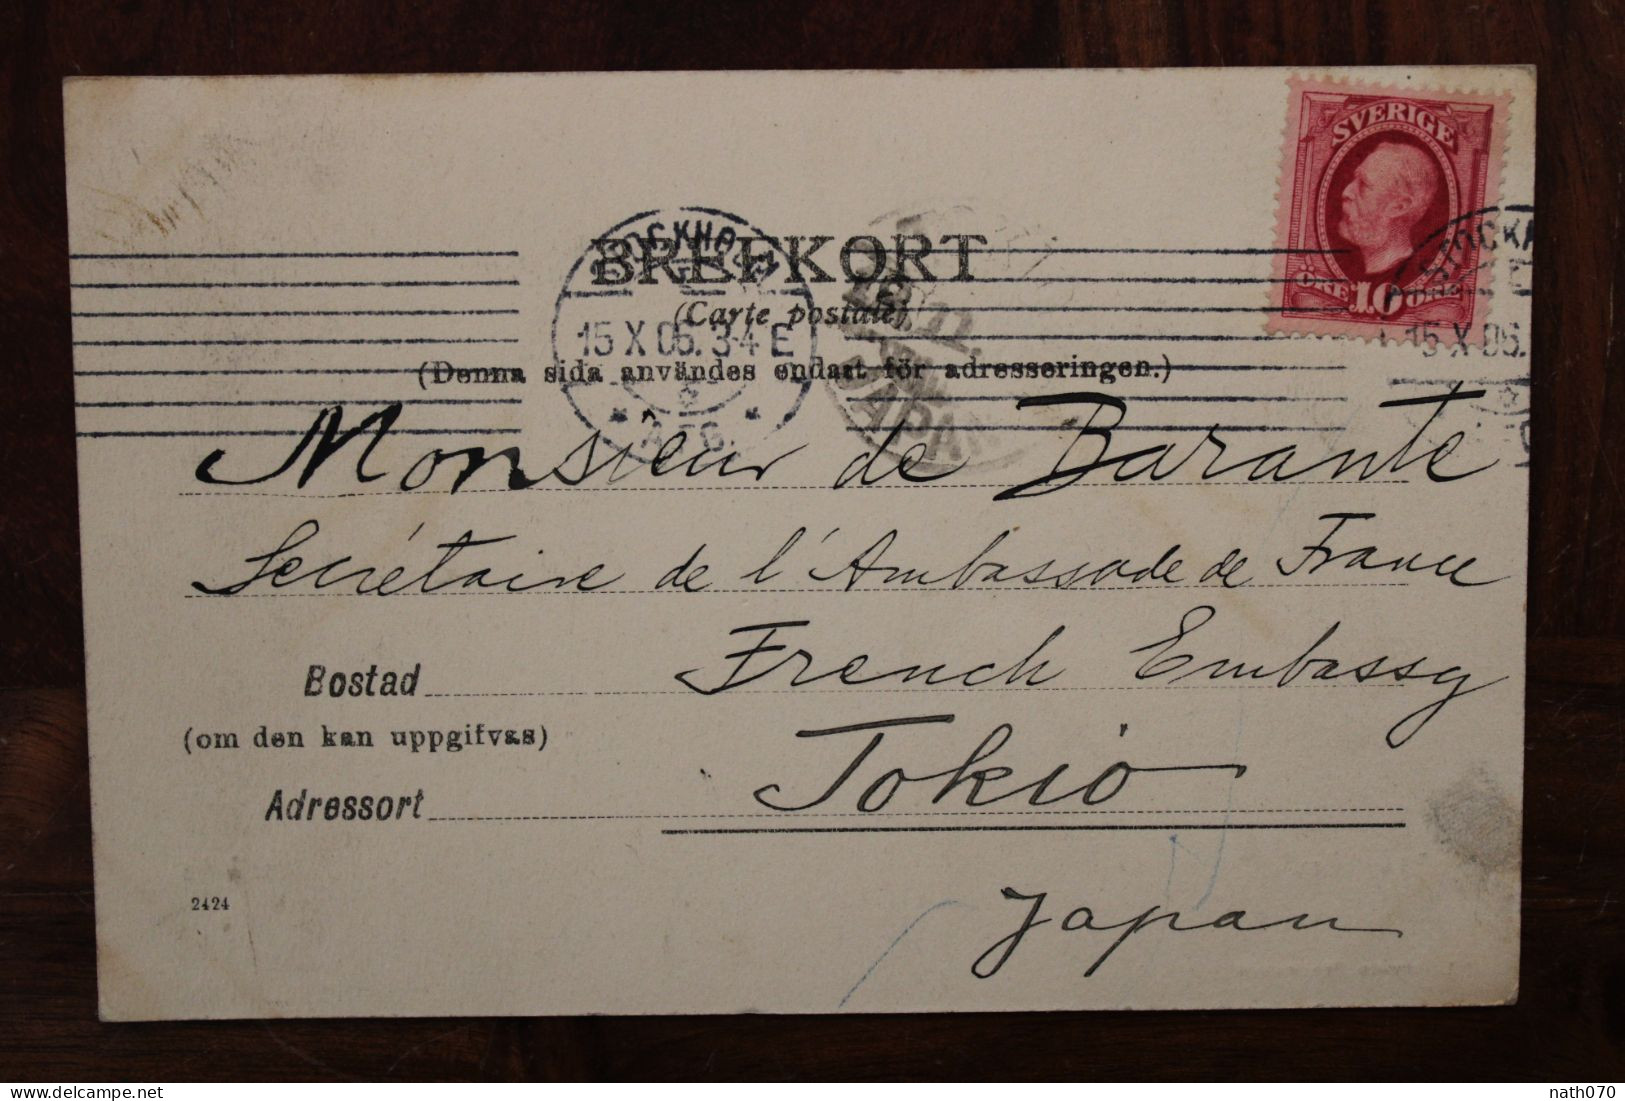 SVERIGE
ÖRE 10 ÖRE
STOCKHOLM
15 X 06. 3-4 E
Å-G.
STOCKH
15 X 06.
BREFKORT
(Carte postale)
(Denna sida användes endast för adresseringen.)
JAPAN
Monsieur de Barante
Secrétaire de l'Ambassade de France
French Embassy
Bostad
(om den kan uppgifvas)
Tokio
Adressort
Japan
2424
nath070